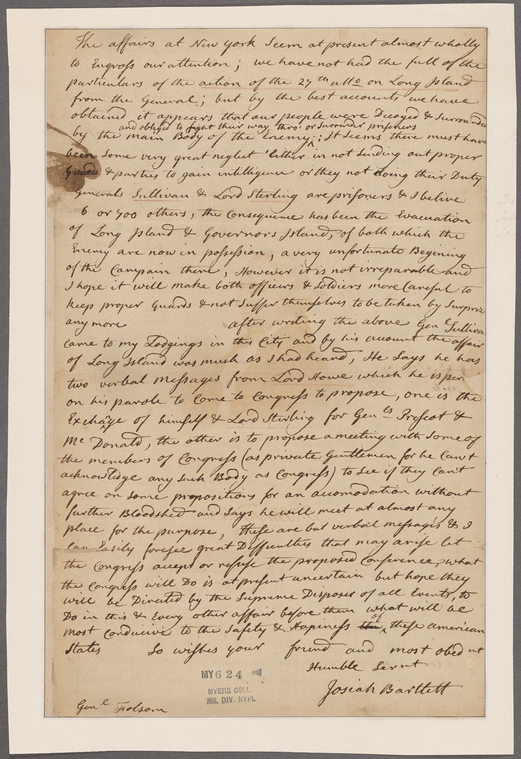 The affairs at New York Seem at present almost wholly
to Engross our attention; we have not had the full of the
particulars of the action of the 27th ulto on Long Island
from the General; but by the best accounts we have
obtained it appears that our people were Decoyed & Surrounded
and obliged to fight their way thro: or Surrender prisoners
by the main Body of the Enemy; it Seems there must have
been Some very great neglect Either in not Sending out proper
Guards & parties to gain intelligence or they not doing their Duty
Generals Sullivan & Lord Sterling are prisoners & I belive
6 or 700 others, the Consequence has been the Evacuation
of Long Island & Governors Island, of both which the
Enemy are now in possession, a very unfortunate Begining
of the Campain there, However it is not irreparable and
I hope it will make both officers & Soldiers more Careful to
keep proper Guards & not Suffer themselves to be taken by Surprize
any more after writing the above Genl Sullivan
came to my Lodgings in this City and by his account the affair
of Long Island was much as I had heard, He Says he has
two verbal messages from Lord Howe which he is
on his parole to Come to Congress to propose, one is the
Exchange of himself & Lord Sterling for Genls Prescot &
Mc Donald, the other is to propose a meeting with Some of
the members of Congress (as private Gentlemen for he Can't
acknowledge any Such Body as Congress) to See if they Can't
agree on Some propositions for an accomodation without
further Bloodshed and Says he will meet at almost any
place for the purpose, these are but verbal messages & I
Can Easily foresee great Difficulties that may arise let
the Congress accept or refuse the proposed Conference, what
the Congress will Do is at present uncertain but hope they
will be Directed by the Supreme Disposer of all Events, to
Do in this & every other affair before them what will be
most Conducive to the Safety & Hapiness of these american
States So wishes your friend and most obedient
Humble Servt
Josiah Bartlett
MY 624
MYERS COLL.
MS. DIV. NYPL
Genl Folsom